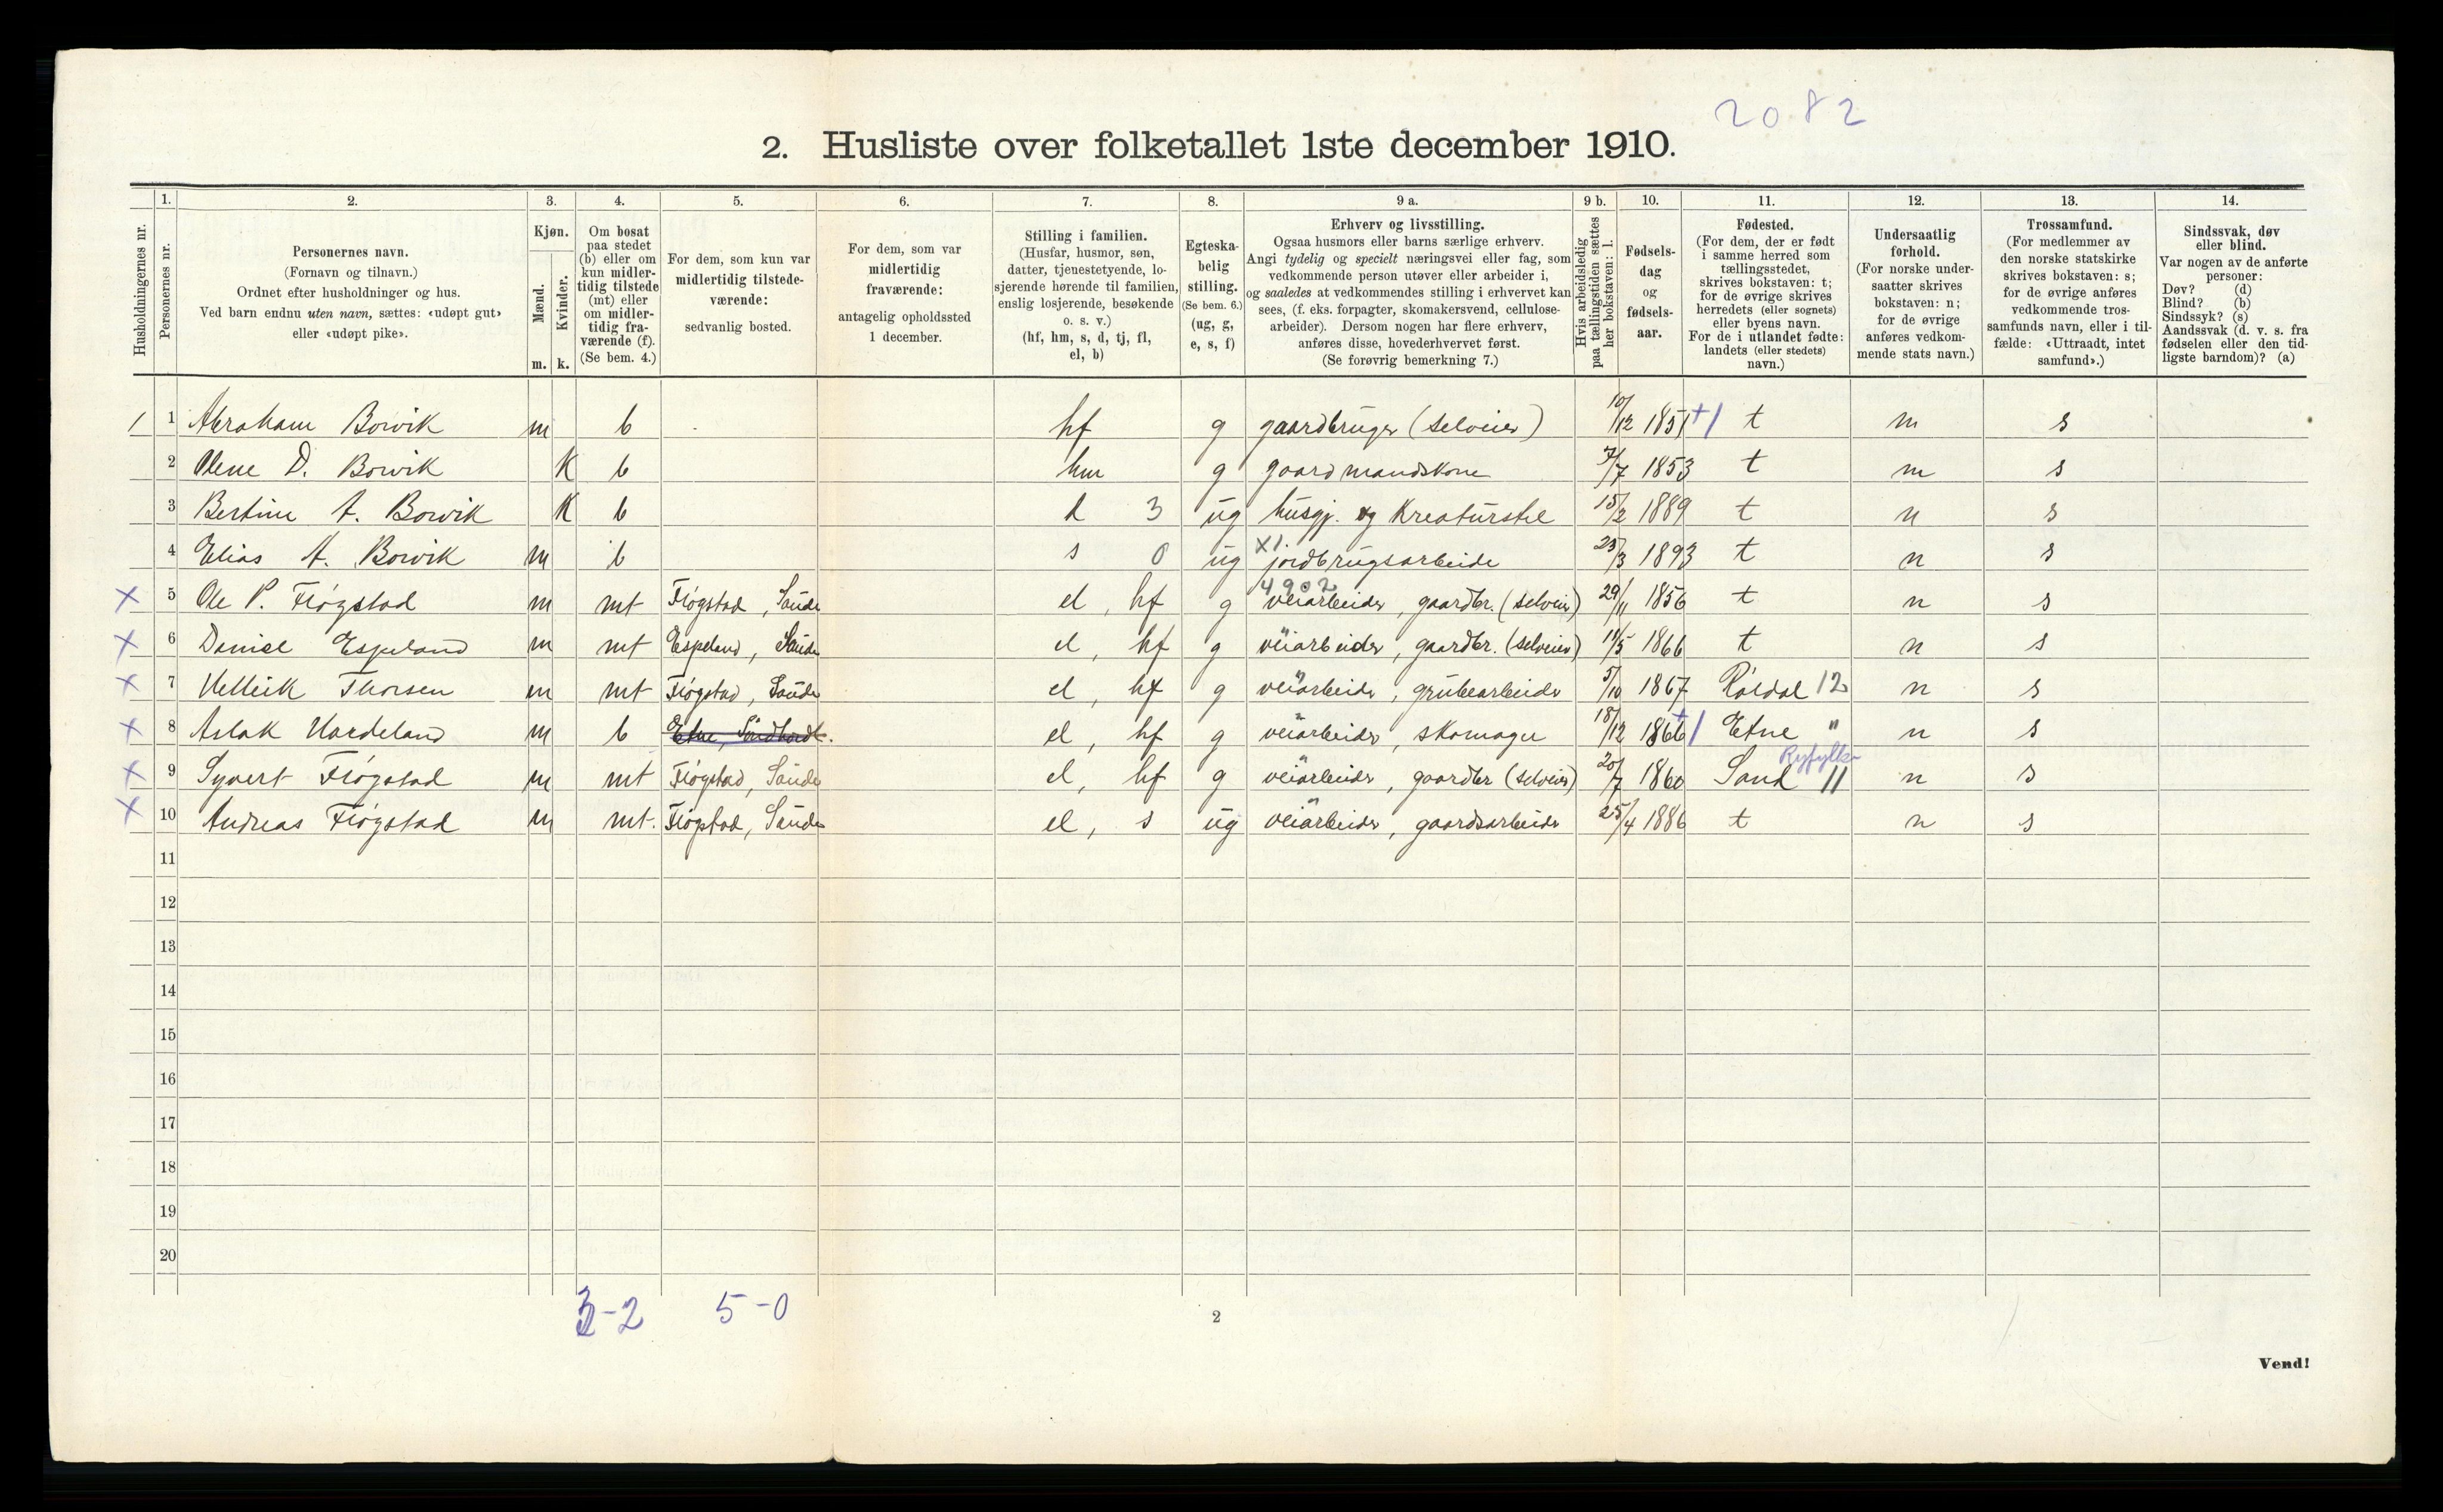 2082
2. Husliste over folketallet 1ste december 1910.
Husholdningernes nr.
1. Personernes nr.
2. Personernes navn. (Fornavn og tilnavn.) Ordnet efter husholdninger og hus. Ved barn endnu uten navn, sættes: «udøpt gut» eller «udøpt pike».
3. Kjøn. Mænd. m. Kvinder. k.
4. Om bosat paa stedet (b) eller om kun midler- tidig tilstede (mt) eller om midler- tidig fra- værende (f). (Se bem. 4.)
5. For dem, som kun var midlertidig tilstede- værende: sedvanlig bosted.
6. For dem, som var midlertidig fraværende: antagelig opholdssted 1 december.
7. Stilling i familien. (Husfar, husmor, søn, datter, tjenestetyende, lo- sjerende hørende til familien, enslig losjerende, besøkende o. s. v.) (hf, hm, s, d, tj, fl, el, b)
8. Egteska- belig stilling. (Se bem. 6.) (ug, g, e, s, f)
9 a. Erhverv og livsstilling. Ogsaa husmors eller barns særlige erhverv. Angi tydelig og specielt næringsvei eller fag, som vedkommende person utøver eller arbeider i, og saaledes at vedkommendes stilling i erhvervet kan sees, (f. eks. forpagter, skomakersvend, cellulose- arbeider). Dersom nogen har flere erhverv, anføres disse, hovederhvervet først. (Se forøvrig bemerkning 7.)
9 b. Hvis arbeidsledig paa tællingstiden sættes her bokstaven: l.
10. Fødsels- dag og fødsels- aar.
11. Fødested. (For dem, der er født i samme herred som tællingsstedet, skrives bokstaven: t; for de øvrige skrives herredets (eller sognets) eller byens navn. For de i utlandet fødte: landets (eller stedets) navn.)
12. Undersaatlig forhold. (For norske under- saatter skrives bokstaven: n; for de øvrige anføres vedkom- mende stats navn.)
13. Trossamfund. (For medlemmer av den norske statskirke skrives bokstaven: s; for de øvrige anføres vedkommende tros- samfunds navn, eller i til- fælde: «Uttraadt, intet samfund».)
14. Sindssvak, døv eller blind. Var nogen av de anførte personer: Døv? (d) Blind? (b) Sindssyk? (s) Aandssvak (d. v. s. fra fødselen eller den tid- ligste barndom)? (a)
1 1 Abraham Borvik m b hf g gaardbruger (selveier) 10/12 1851 +/ t n s
2 Olene D. Borvik K b hm g gaardmandskone 7/7 1853 t n s
3 Bertine A. Borvik K b d 3 ug husgj. og Kreaturstel 15/2 1889 t n s
4 Elias A. Borvik m b s 0 ug X1. jordbrugsarbeide 23/3 1893 t n s
4902
X 5 Ole P. Fløgstad m mt Fløgstad, Saude el, hf g veiarbeider, gaardbr. (selveier) 29/11 1856 t n s
X 6 Daniel Espeland m mt Espeland, Saude el, hf g veiarbeider, gaardbr. (selveier) 11/5 1866 t n s
X 7 Helleik Thorsen m mt Fløgstad, Saude el, hf g veiarbeider, grubearbeider 5/10 1867 Røldal 12 n s
X 8 Aslak Hardeland m b Etne, Søndhordl. el, hf g veiarbeider, skomager 18/12 1866 +/ Etne " n s
Ryfylke
X 9 Syvert Fløgstad m mt Fløgstad, Saude el, hf g veiarbeider, gaardbr (selveier) 20/7 1860 Sand 11 n s
X 10 Andreas Fløgstad m mt. Fløgstad, Saude el, s ug veiarbeider, gaardsarbeide 25/4 1886 t n s
11
12
13
14
15
16
17
18
19
20
3-2 5-0
2
Vend!